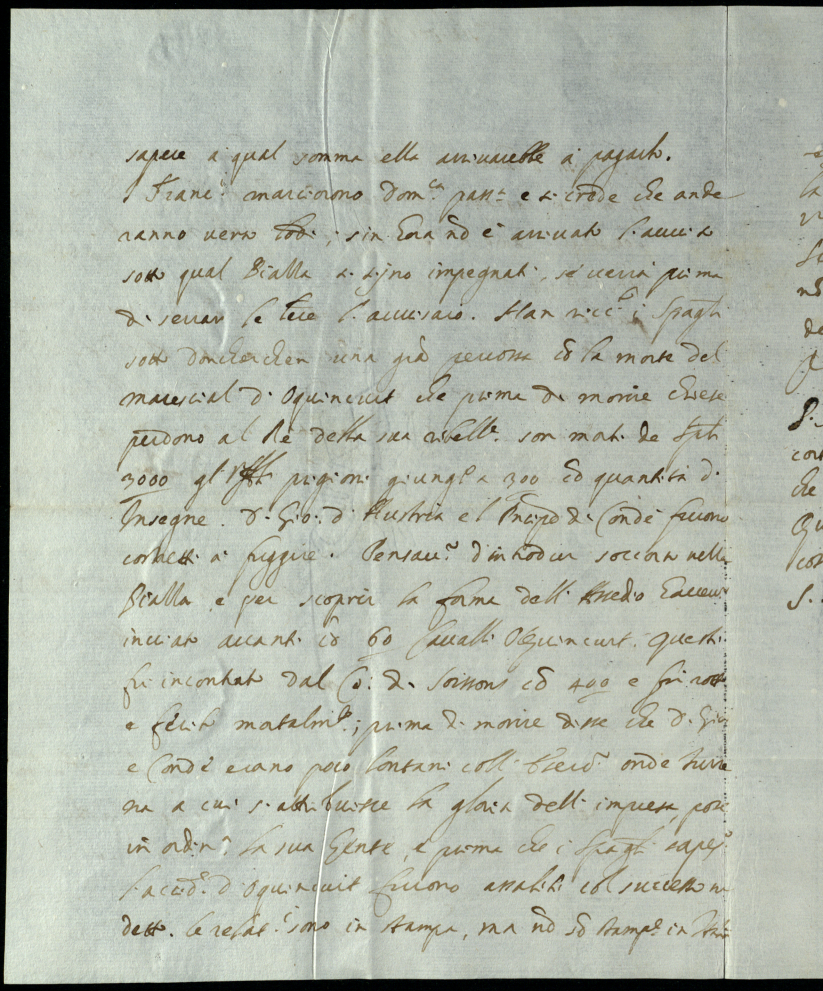 sapere a qual somma ella arrivarebbe a pagarlo.
I Franc.i marciorono Dom.ca pass.ta e si crede che ande
ranno verso Lodi, sin hora nõ è arrivato l'aviso
sotto qual Pialla si sijno impegnati, se verrà prima
di serrar le l'avisarò. Han ricc.to i Spag.li
sotto Doncherchen una grã percossa cõ la morte del
marescial d'Oquincurt che prima di morire chiese
perdono al Rè della sua ribell.e son morti de Spli
3000 gl' prigioni giung.o a 300 cõ quantità d'
Insegne. D. Gio: d'Austria e l Prncipe di Condè furono
corsetti a fuggire. Pensav.o d'introdur soccorso nella
Pialla e per scoprir la forma dell' Assedio havevõ
inviato avanti cõ 60 Cavalli Oquincurt. Questi
fu incontrato dal Co: di Soissons cõ 400 e fu rotto
e ferito mortalm.te; prima di morire disse che D. Gio:
e Condè erano poco lontani coll' onde Turre
na a cui s'attribuisce la gloria dell'impresa, pose
in ordin.a la sua Gente, e prima che i Spag.li sapes.o
l'accid.e d'Oquincurt furono assaliti col successo su
detto. Le relat.i sono in stampa, ma nõ sõ stamp.e in